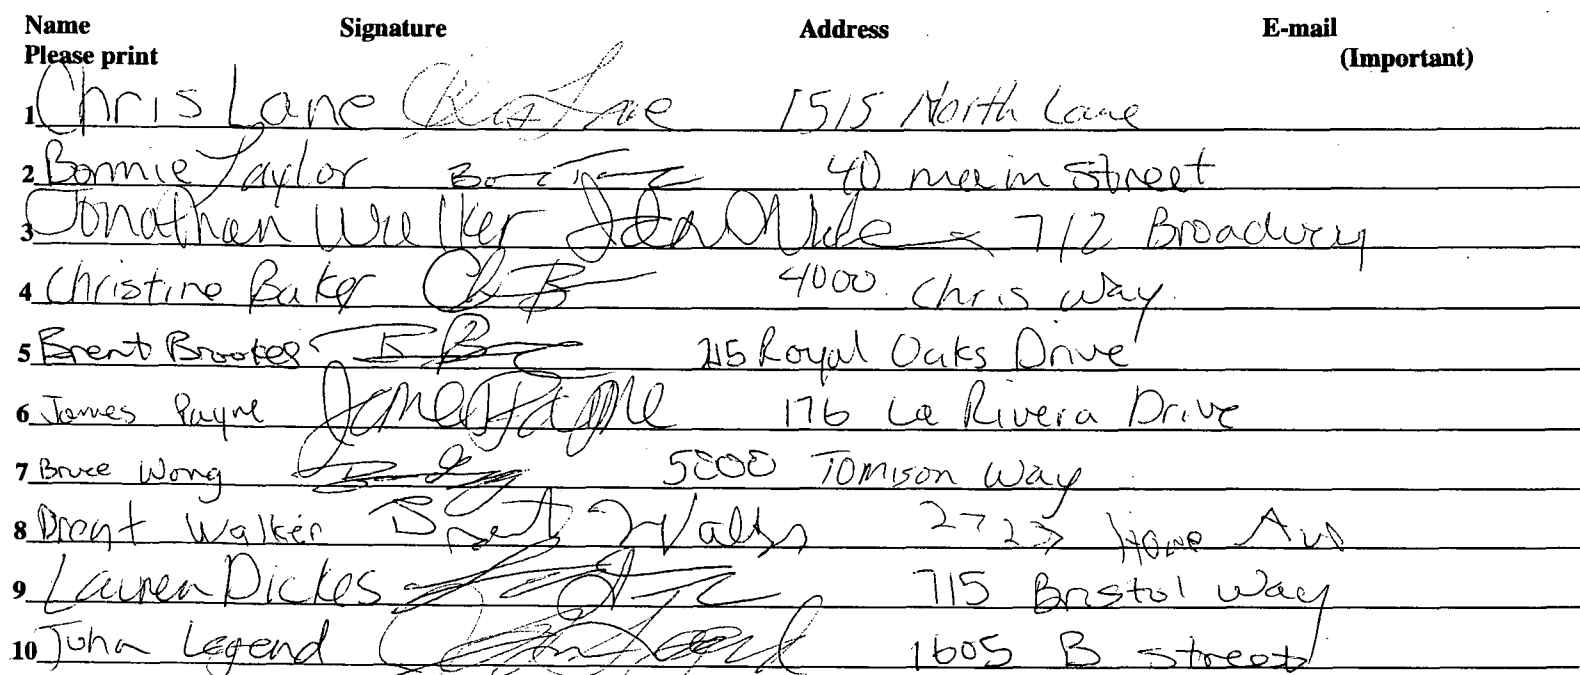 Name Signature Address E-mail
Please print (Important)
1 Chris Lane Chris Lane 1515 North Lane
2 Bonnie Taylor 40 main street
3 Jonathan Walker 712 Broadway
4 Christine Baker 4000 Chris Way
5 Brent Brookes 215 Royal Oaks Drive
6 James Payne James Payne 176 La Rivera Drive
7 Bruce Wong 5000 Tomison Way
8 Brent Walker Brent Walker 2727 Home Ave
9 Lauren Dickes 715 Bristol Way
10 John Legend John Legend 1605 B street